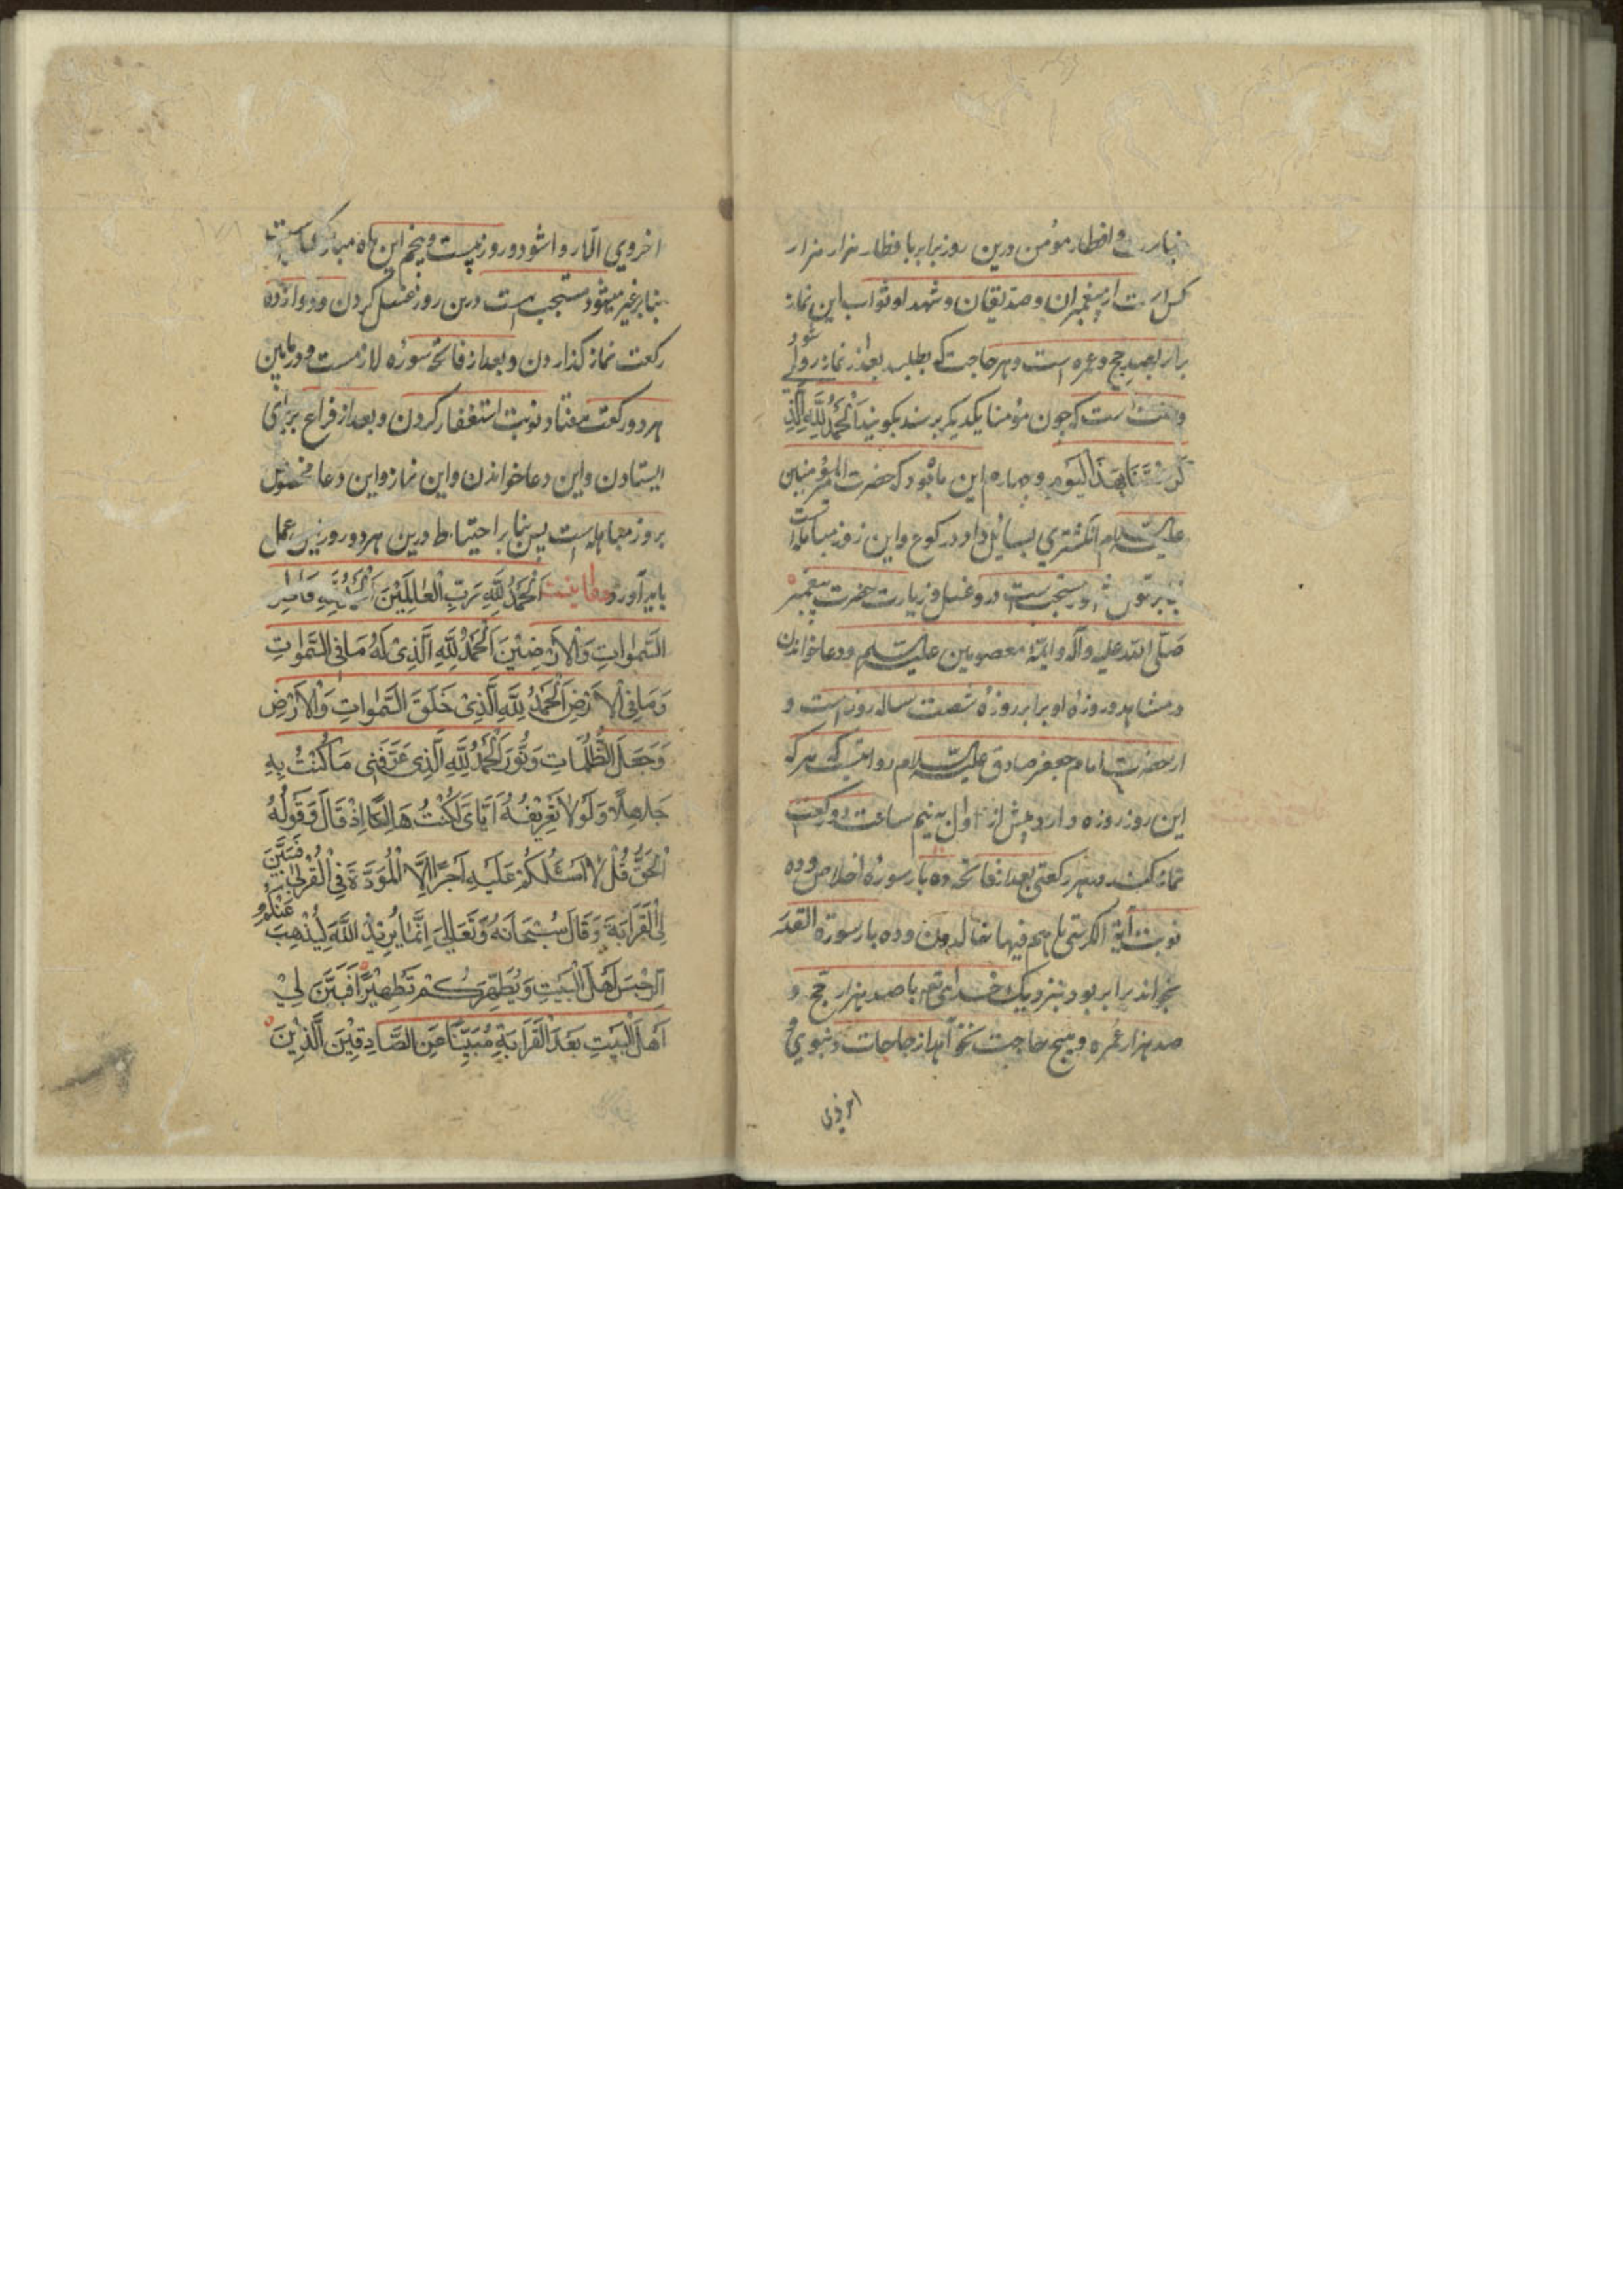 وافطار مؤمن درین روز برابر با فطار هزار هزار
کس است از پیغمبران و صدیقان و شهدا و ثواب این نماز
برابر بصد حج و عمره است و هر حاجت که بطلبد بعد از نماز روا شود
و سنت است که چون مؤمنا یکدیکر برسند بکویند اَلْحَمْدُ لِلّٰهِ الَّذِی
بِهَذَا الْیَوْمِ و چهارم این ماه بود که حضرت امیرالمؤمنین
علیه السلام انکشتری بسائل داد در رکوع و این روز مباهله است
مستحب است درو غسل و زیارت حضرت پیغمبر
صلی الله علیه وآله وایمّهٔ معصومین علیهم السلام و دعا خواندن
در مشاهد و روزهٔ او برابر روزهٔ شصت ساله روزه است و
از حضرت امام جعفر صادق علیه السلام روایتست که هر که
این روز روزه دارد و پیش از اول به نیم ساعت دو رکعت
نماز کند و بهر رکعتی بعد از فاتحه ده بار سورهٔ اخلاص و ده
نوبت آیة الکرسی تا هم فیها خالدون و ده بار سورة القدر
بخواند برابر بود بنزدیک خدای تعه با صد هزار حج و
صد هزار عُمره و هیچ حاجت نخواهد از حاجات دنیوی و
اخروی
اخروی الّا روا شود و روز بیست و پنجم این ماه مبارک
مستحب است درین روز غسل کردن و دوازده
رکعت نماز کذاردن و بعد از فاتحه سوره لازمست و در مابین
هر دو رکعت هفتاد نوبت استغفار کردن و بعد از فراغ بر پای
ایستادن و این دعا خواندن و این نماز و این دعا مخصوص
بروز مباهله است پس بنا بر احتیاط درین هر دو روز نیز عمل
باید آورد دعا اینست اَلْحَمْدُ لِلّٰهِ رَبِّ الْعَالَمِیْنَ
السَّمٰوَاتِ وَالْاَرَضِیْنَ اَلْحَمْدُ لِلّٰهِ الَّذِیْ لَهُ مَا فِی السَّمٰوَاتِ
وَمَا فِی الْاَرْضِ اَلْحَمْدُ لِلّٰهِ الَّذِیْ خَلَقَ السَّمٰوَاتِ وَالْاَرْضِ
وَجَعَلَ الظُّلُمَاتِ وَنُّوْرَ اَلْحَمْدُ لِلّٰهِ الَّذِی عَرَّفَنِی مَا کُنْتُ بِهِ
جَاهِلًا وَلَوْلَا تَعْرِیْفُهُ اَیَّایَ لَکُنْتُ هَالِکًا اِذْ قَالَ وَقَوْلُهُ
الْحَقُّ قُلْ لَا اَسْئَلُکُمْ عَلَیْهِ اَجْرًا اِلَّا الْمَوَدَّةَ فِی الْقُرْبٰی فَبَیَّنَ
لِیَ الْقَرَابَةَ وَقَالَ سُبْحَانَهُ وَتَعَالٰی اِنَّمَا یُرِیْدُ اللّٰهُ لِیُذْهِبَ عَنْکُمُ
الرِّجْسَ اَهْلَ الْبَیْتِ وَیُطَهِّرَکُمْ تَطْهِیْرًا فَبَیَّنَ لِیْ
اَهْلَ الْبَیْتِ بَعْدَ الْقَرَابَةِ مُبَیِّنًا عَنِ الصَّادِقِیْنَ الَّذِیْنَ